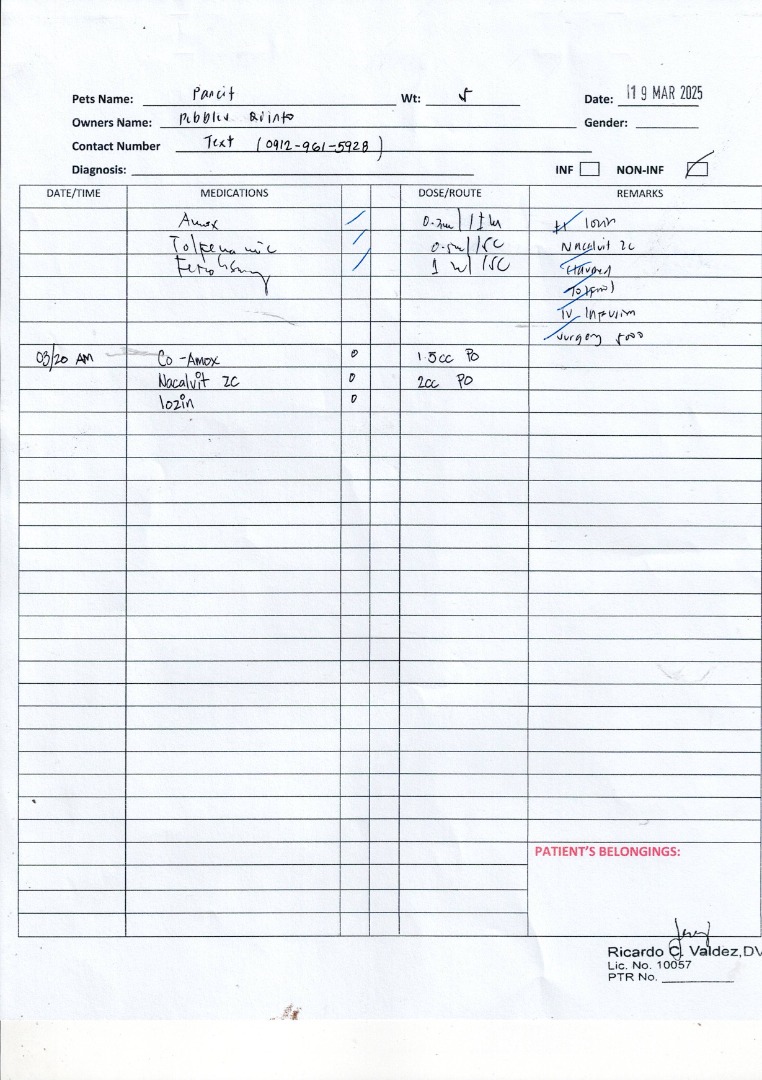 Pets Name: Pancit Wt: 5 Date: 19 MAR 2025
Owners Name: Pebbles Quinto Gender:
Contact Number Text (0912-961-5928)
Diagnosis: INF NON-INF
DATE/TIME MEDICATIONS DOSE/ROUTE REMARKS
Amox /
Tolfenamic / Nacalvit 2C
/ 1 ml/SC
IV Infusion
Surgery
03/20 AM Co-Amox 0 1.5cc PO
Nacalvit 2C 0 2cc PO
lozin 0
PATIENT'S BELONGINGS:
Ricardo C. Valdez, DV
Lic. No. 10057
PTR No.